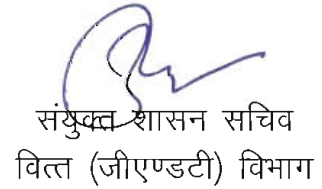 संयुक्त शासन सचिव
वित्त (जीएण्डटी) विभाग